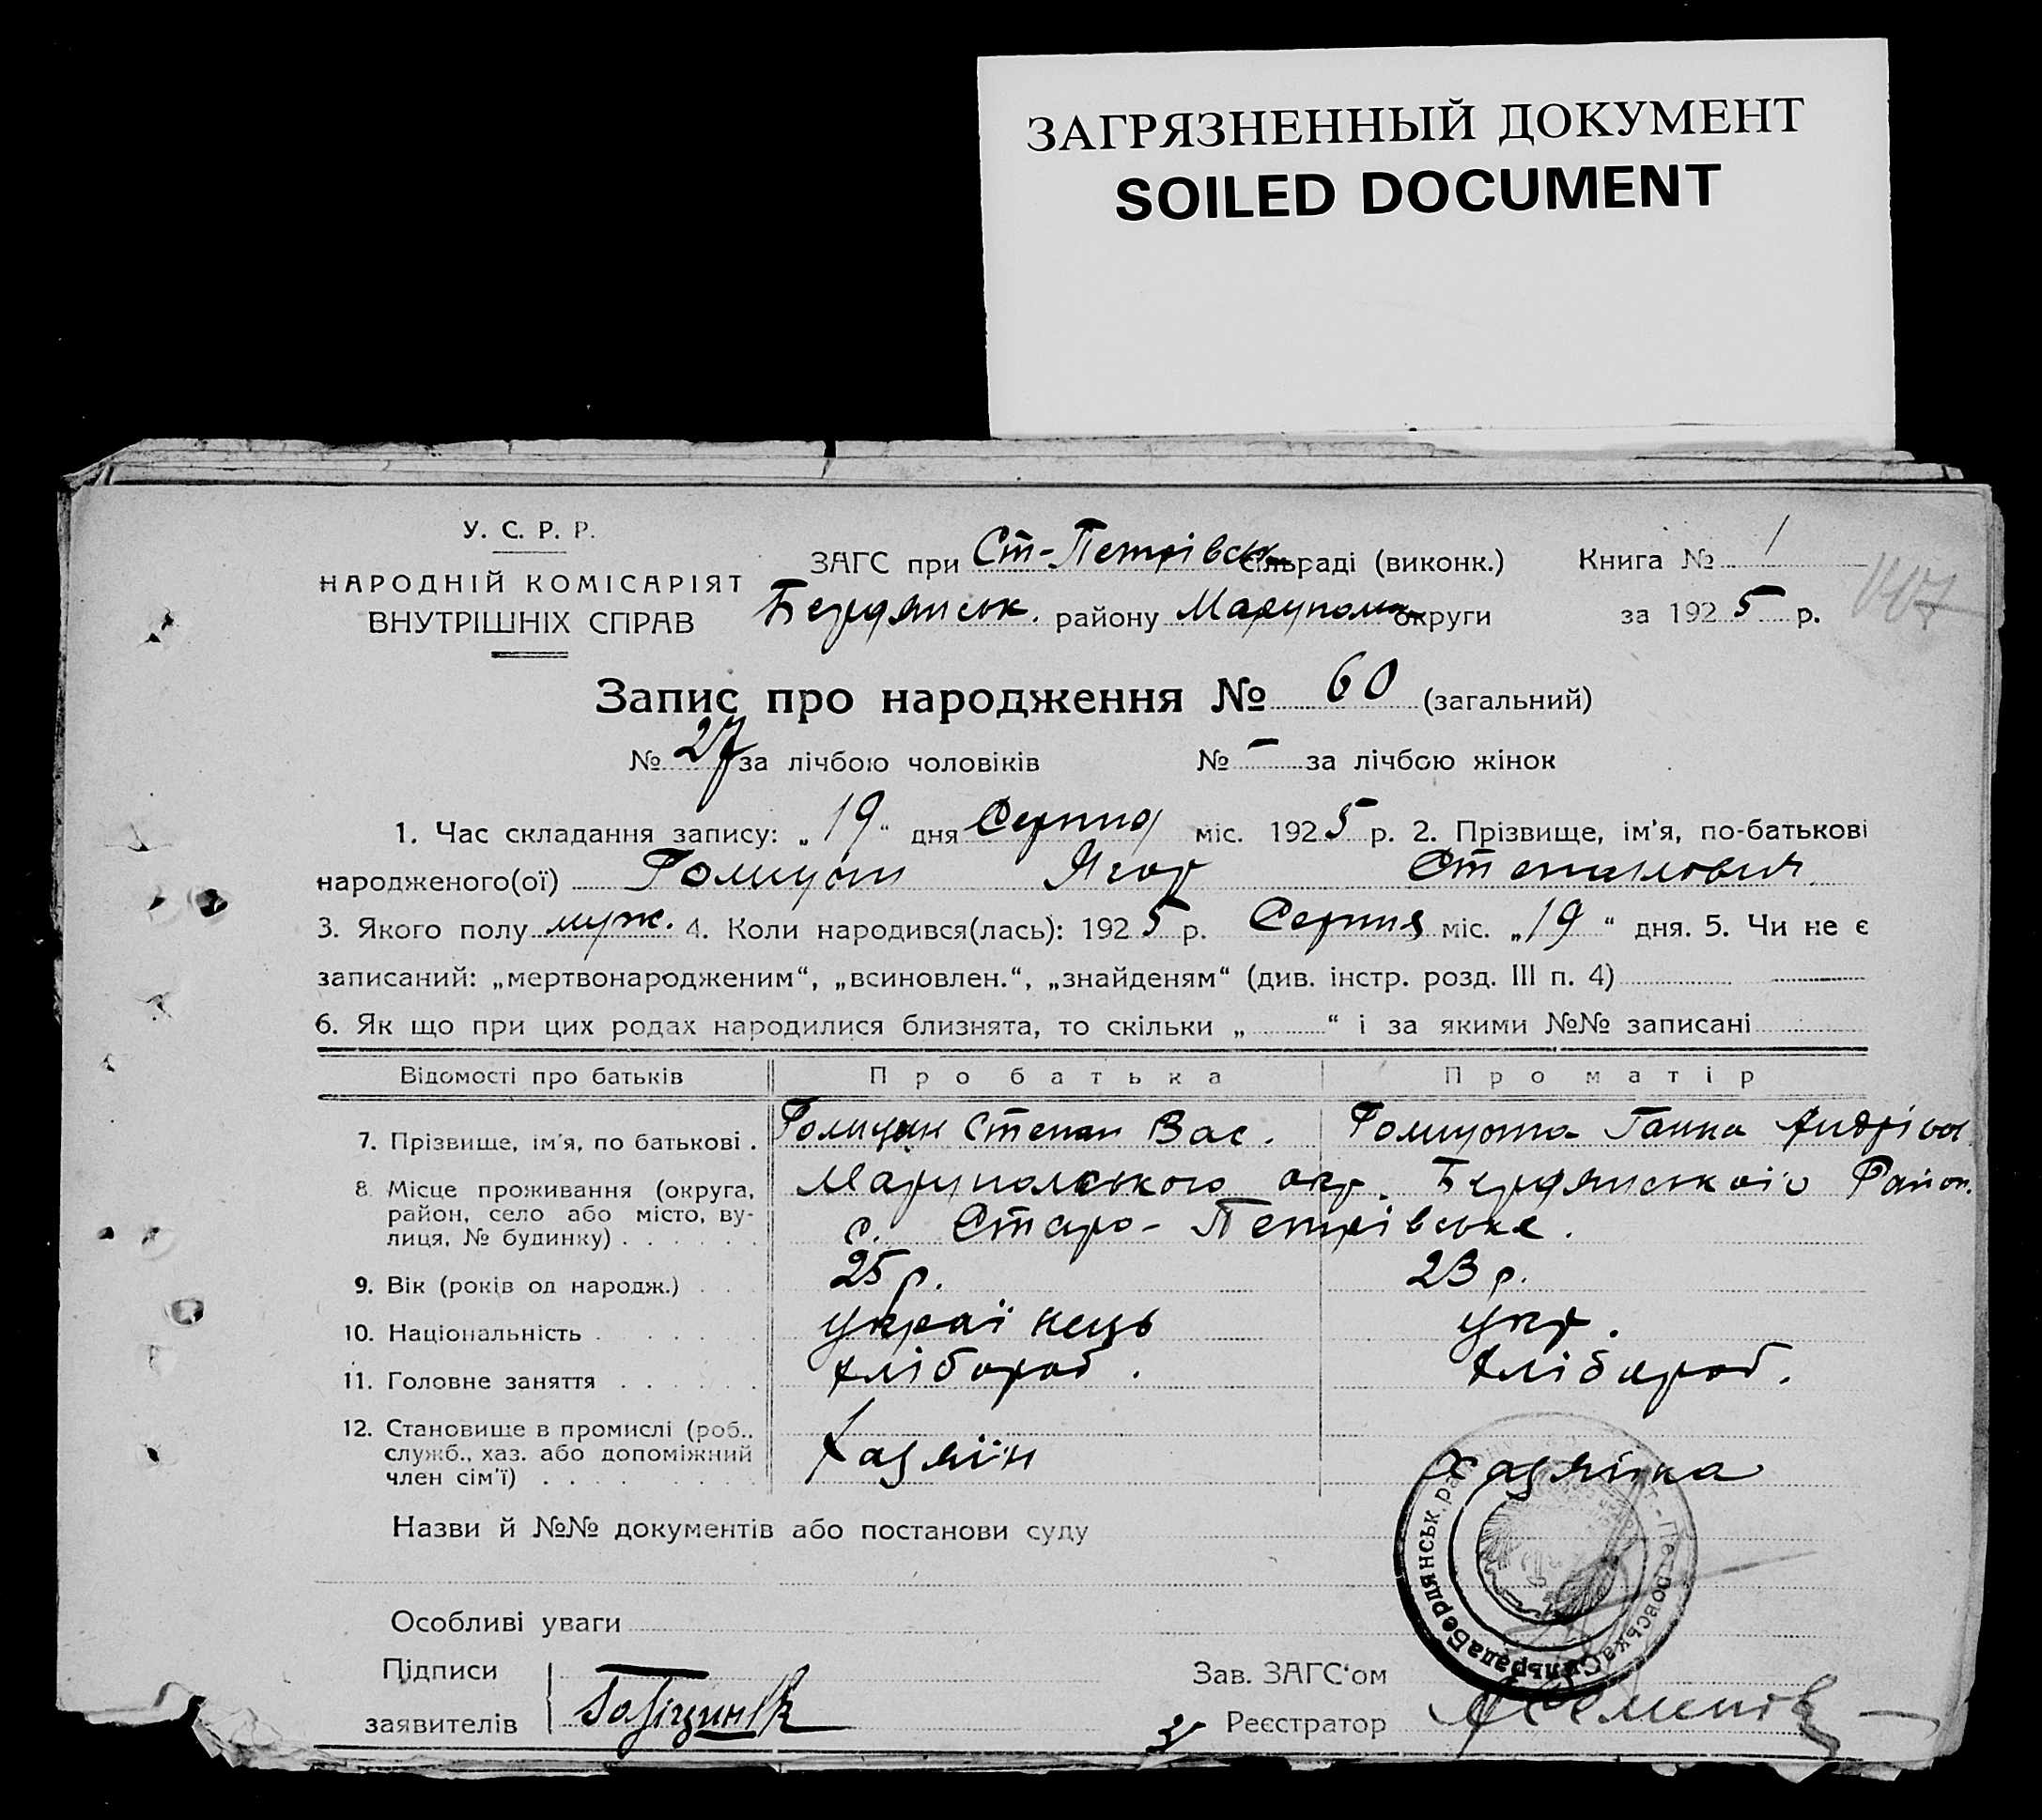 ЗАГРЯЗНЕННЫЙ ДОКУМЕНТ
SOILED DOCUMENT
У. С. Р. Р.
НАРОДНІЙ КОМІСАРІЯТ
ВНУТРІШНІХ СПРАВ
ЗАГС при Ст-Петрівськ сільраді (виконк.) Книга № 1
Бердянськ. району Маріупольс округи за 1925 р.
Запис про народження № 60 (загальний)
№ 27 за лічбою чоловіків № – за лічбою жінок
1. Час складання запису: „19“ дня Серпня міс. 1925 р. 2. Прізвище, ім'я, по-батькові
народженого(ої) Ягор Степанович
3. Якого полу муж. 4. Коли народився(лась): 1925 р. Серпня міс. „19“ дня. 5. Чи не є
записаний: „мертвонародженим“, „всиновлен.“, „знайденям“ (див. інстр. розд. III п. 4)
6. Як що при цих родах народилися близнята, то скільки „ “ і за якими №№ записані
Відомості про батьків Про батька Про матір
7. Прізвище, ім'я, по батькові . Степан Вас. Ганна Андрівна
8. Місце проживання (округа, Маруполського окр. Бердянського Район.
район, село або місто, ву- с. Старо-Петрівське.
лиця, № будинку) . . . . . .
9. Вік (років од народж.) . . . 25 р. 23 р.
10. Національність . . . . . українець укр.
11. Головне заняття . . . . . . хлібороб. хлібороб.
12. Становище в промислі (роб., 
служб., хаз. або допоміжний хазяїн хазяйка
член сім'ї) . . . . . . . .
Назви й №№ документів або постанови суду
Особливі уваги
Підписи Зав. ЗАГС'ом
заявителів Реєстратор
Сільрада Бердянськ. ра Ст-Петровська